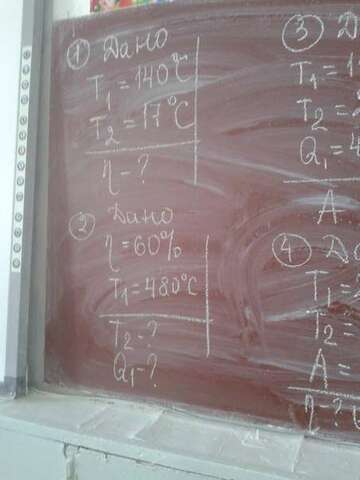 ① Дано
T₁ = 140°C
T₂ = 17°C
η - ?
② Дано
η = 60%
T₁ = 480°C
T₂ - ?
Q₁ - ?
③
T₁ =
T₂ =
Q₁ = 4
A
④
T₁ =
T₂ =
A =
η - ?